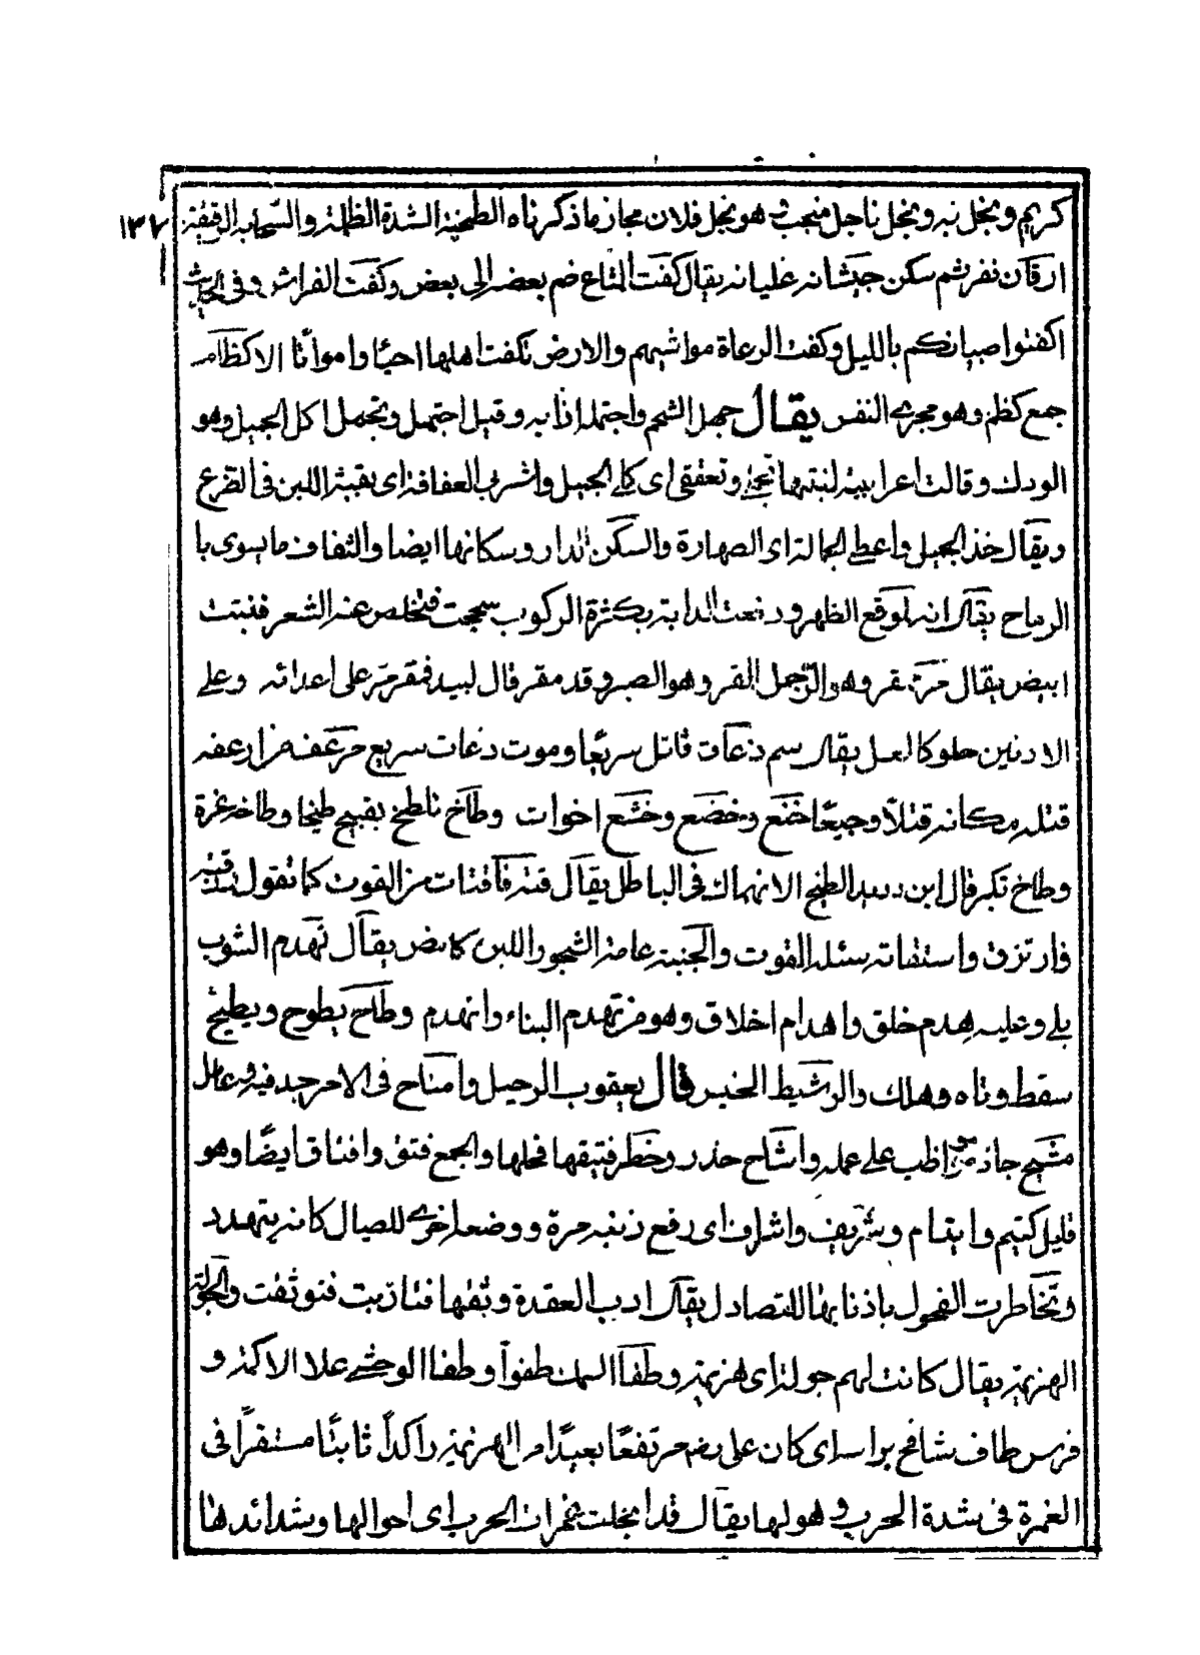 ١٣٧
كريم ونجل به ونجل ناجل منجب وهو نجل فلان مجاز ماذكرناه الطخية الشدة الظلمة والسحابة الرقيقة
ارقان نفر ثم سكن جيشانه غليانه يقال كفت المتاع ضم بعضه الى بعض وكفت الفراش وفى الحديث
اكفتوا صبيانكم بالليل وكفت الرعاة مواشيهم والارض تكفت اهلها احياًا وامواتًا الاكظام
جمع كظم وهو مجرى النفس يقال جمل الشحم واجتمله اذابه وقيل اجتمل وتجمل اكل الجميل وهو
الودك وقالت اعرابية لبنتها تجملى وتعففى اى كلى الجميل واشربى العفافة اى بقية اللبن فى الضرع
ويقال خذ الجميل واعطى الجمالة اى الصهارة والسكن الدار وسكانها ايضا والثقاف مايسوى با
الرماح يقال انه لموقع الظهر ودبعت الدابة بكثرة الركوب سحجت فتخلص عنه الشعر فنبتت
ابيض يقال مقر وهو الصبر وقد مقر قال لبيد ممقر مر على اعدائه وعلى
الادنين حلو كالعسل يقال سم ذعاف قاتل سريعًا وموت ذعاف سريع من ازعفه
قتله مكانه قتلاً وحيًا خنع وخضع وخشع اخوات وطاخ تلطخ بقبيح طيخا وطاخه غيره
وطاخ تكبر قال ابن دريد الطيخ الانهماك فى الباطل يقال قته فاقتات من القوت كما تقول رزقته
فارتزق واستقاته سئله القوت والجنبة عامة الشجر واللبن يقال تهدم الثوب
بلى وعليه هدم خلق واهدام اخلاق وهو من تهدم البناء وانهدم وطاح يطوح ويطيح
سقط وتاه وهلك قال يعقوب الرحيل فى الامر جد فيه وعامل
مشيح جاد مواظب على عمله واشاح حذر وخطر فتيقها فحلها والجمع فتق وافتاق ايضًا وهو
قليل كيتيم وايتام وشريف واشراف اى رفع ذنبه مرة ووضعه اخرى للصيال كانه يتهدد
وتخاطرت الفحول باذنابها للتصاول يقال ارب العقدة وثقها فتازبت فتوثقت والجولة
الهزيمة يقال كانت لهم جولة اى هزيمة وطفا السمك طفواً وطفا الوحشى علا الاكمة و
فرس طاف شامخ براسه اى كان على بضم مرتفعًا بعيدًا من الهزيمة راكداً ثابتًا مستقرًا فى
الغمرة فى شدة الحرب وهولها يقال قد انجلت غمرات الحرب اى احوالها وشدائدها